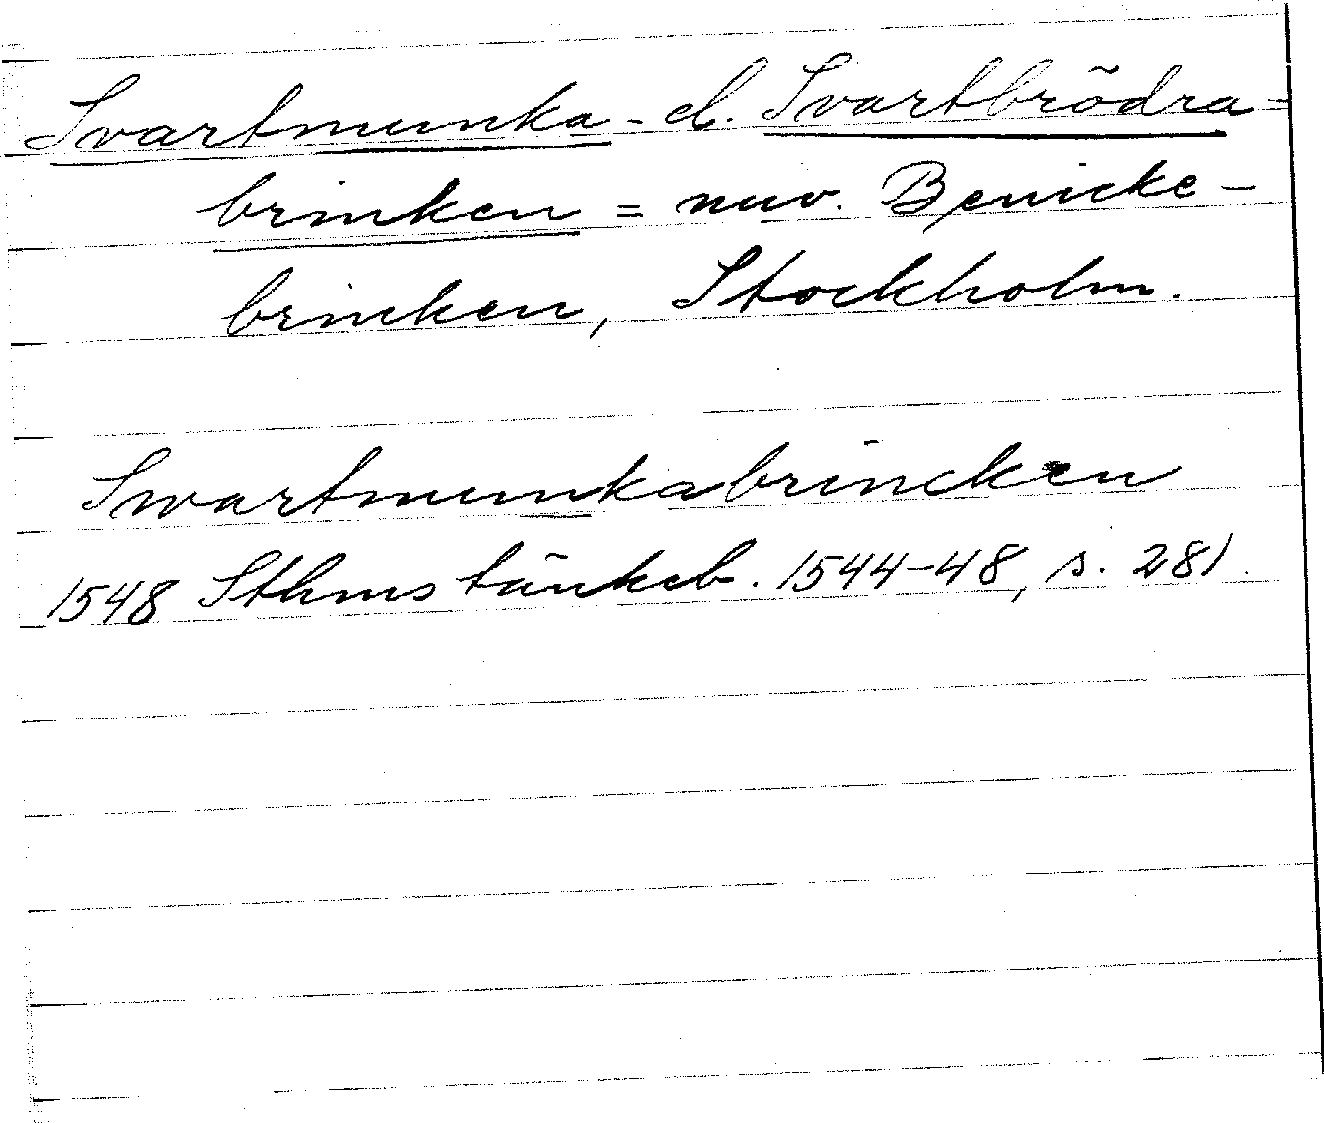 Svartmunka- el. Svartbrödra-
brinken = nuv. Benicke-
brinken, Stockholm.
Swartmunkabrincken
1548 Sthms tänkeb. 1544-48, s. 281.